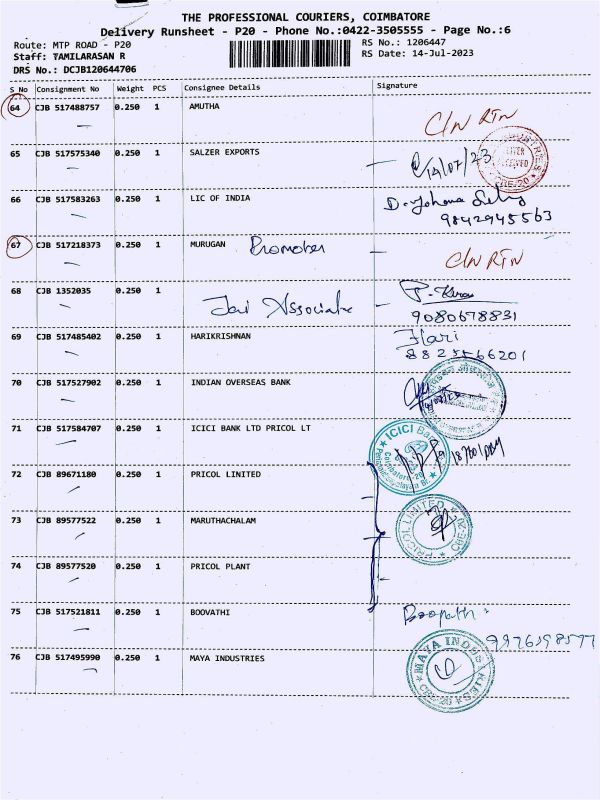 THE PROFESSIONAL COURIERS, COIMBATORE
Delivery Runsheet - P20 - Phone No.:0422-3505555 - Page No.:6
Route: MTP ROAD - P20
RS No.: 1206447
Staff: TAMILARASAN R
RS Date: 14-Jul-2023
DRS No.: DCJB120644706
S No Consignment No Weight PCS Consignee Details Signature
64 CJB 517488757 0.250 1 AMUTHA
C/N RTN
65 CJB 517575340 0.250 1 SALZER EXPORTS
14/07/23
66 CJB 517583263 0.250 1 LIC OF INDIA
9842945563
67 CJB 517218373 0.250 1 MURUGAN Promoter
C/N RTN
68 CJB 1352035 0.250 1
Associate
9080678831
69 CJB 517485402 0.250 1 HARIKRISHNAN Hari
8825566201
70 CJB 517527902 0.250 1 INDIAN OVERSEAS BANK
71 CJB 517584707 0.250 1 ICICI BANK LTD PRICOL LT
ICICI Bank
72 CJB 89671180 0.250 1 PRICOL LINITED
73 CJB 89577522 0.250 1 MARUTHACHALAM
PRICOL LIMITED
74 CJB 89577520 0.250 1 PRICOL PLANT
75 CJB 517521811 0.250 1 BOOVATHI
Boopathi
9976598577
76 CJB 517495990 0.250 1 MAYA INDUSTRIES
MAYA INDUSTRIES
CBE-20